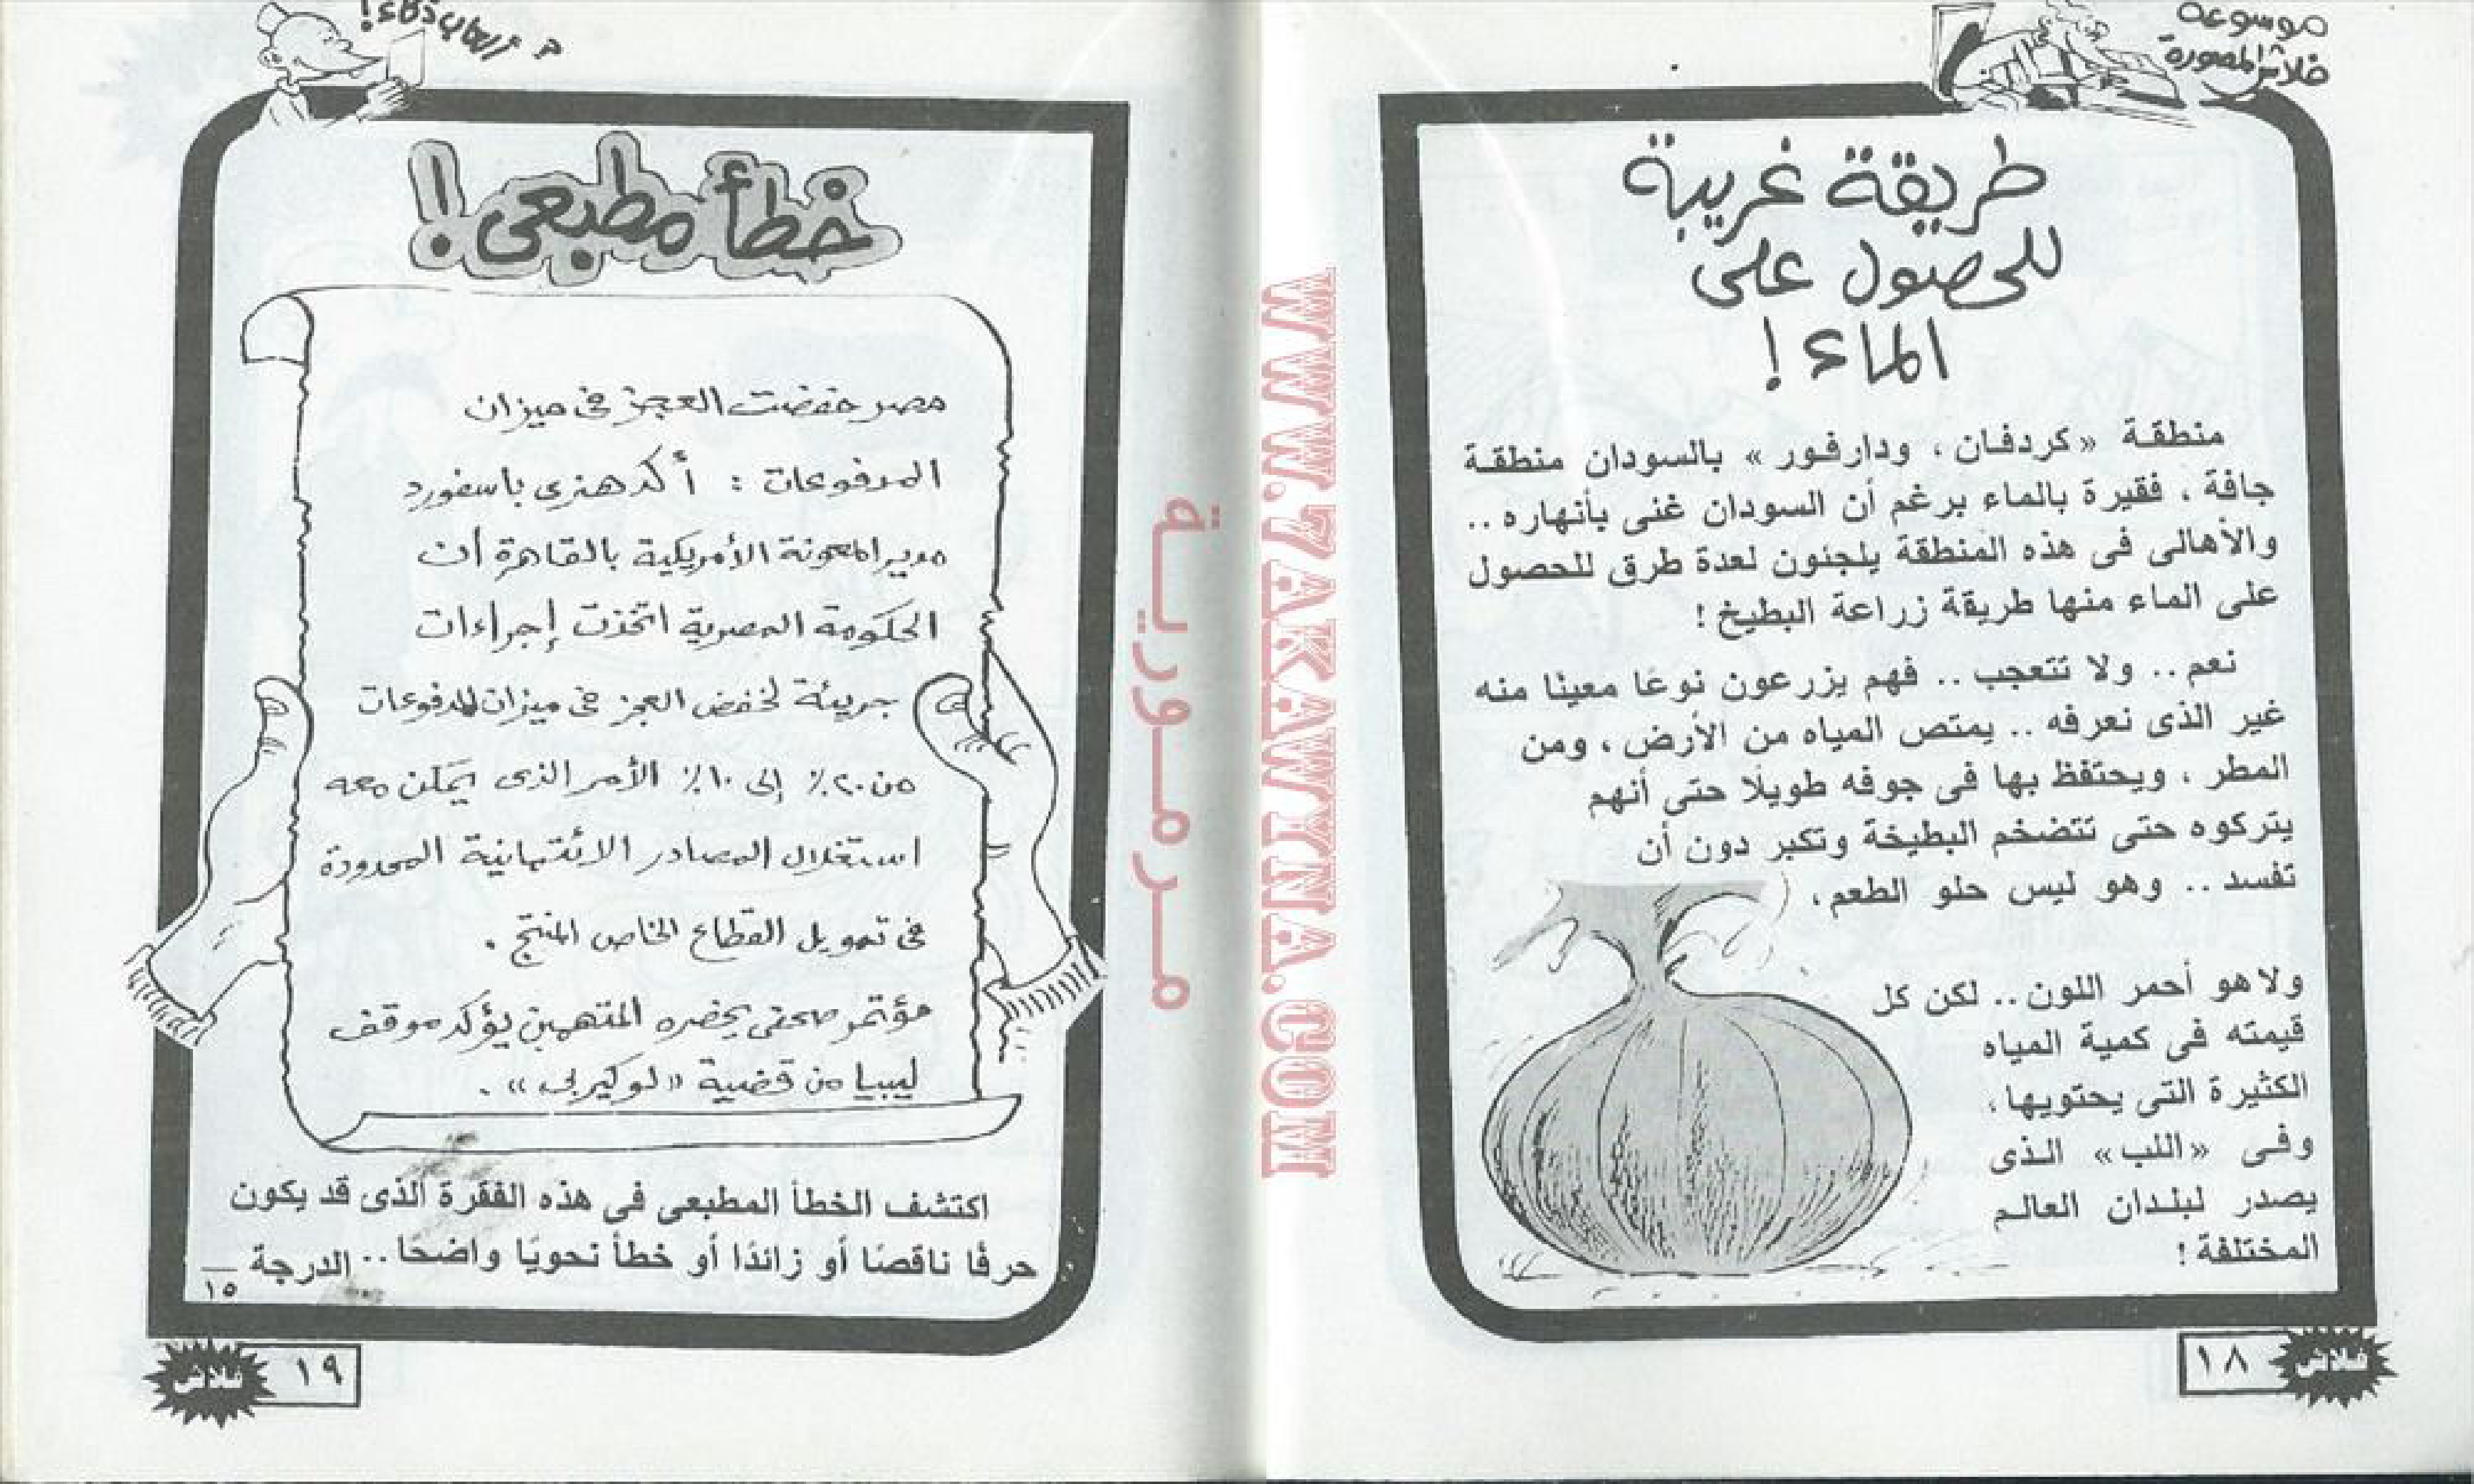 موسوعة
فلاش المصورة
طريقة غريبة
للحصول على
الماء !
منطقة « كردفان ، ودارفور » بالسودان منطقة
جافة ، فقيرة بالماء برغم أن السودان غنى بأنهاره ..
والأهالى فى هذه المنطقة يلجئون لعدة طرق للحصول
على الماء منها طريقة زراعة البطيخ !
نعم .. ولا تتعجب .. فهم يزرعون نوعًا معينًا منه
غير الذى نعرفه .. يمتص المياه من الأرض ، ومن
المطر ، ويحتفظ بها فى جوفه طويلًا حتى أنهم
يتركوه حتى تتضخم البطيخة وتكبر دون أن
تفسد .. وهو ليس حلو الطعم ،
ولا هو أحمر اللون .. لكن كل
قيمته فى كمية المياه
الكثيرة التى يحتويها ،
وفى « اللب » الذى
يصدر لبلدان العالم
المختلفة !
١٨
فلاش
WWW.7AKAWINA.COM
مرمورية
ألعاب ذكاء !
خطأ مطبعى !
مصر خفضت العجز فى ميزان
المدفوعات : أكد هنرى باسفورد
مدير المعونة الأمريكية بالقاهرة أن
الحكومة المصرية اتخذت إجراءات
جريئة لخفض العجز فى ميزان المدفوعات
من ٢٠٪ إلى ١٠٪ الأمر الذى يمكن معه
استغلال المصادر الائتمانية المحدودة
فى تمويل القطاع الخاص المنتج .
مؤتمر صحفى يحضره المتهمين يؤكد موقف
ليبيا من قضية « لوكيربى » .
اكتشف الخطأ المطبعى فى هذه الفقرة الذى قد يكون
حرفًا ناقصًا أو زائدًا أو خطأ نحويًا واضحًا .. الدرجة —
١٥
١٩
فلاش